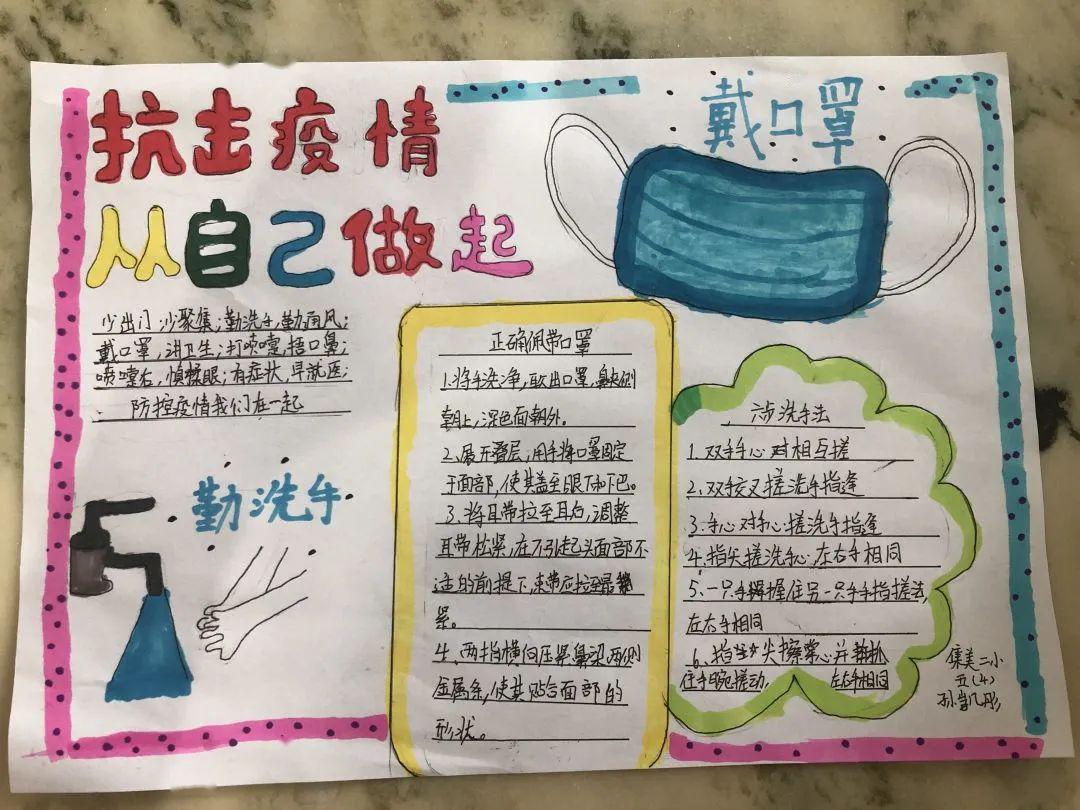 抗击疫情
从自己做起
戴口罩
少出门,少聚集;勤洗手,勤通风;
戴口罩,讲卫生;打喷嚏,捂口鼻;
喷嚏后,慎揉眼;有症状,早就医;
防控疫情我们在一起
勤洗手
正确佩带口罩
1.将手洗净,取出口罩,鼻夹侧
朝上,深色面朝外。
2、展开叠层,用手将口罩固定
于面部,使其盖至眼下和下巴。
3、将耳带拉至耳后,调整
耳带松紧,在不引起头面部不
适的前提下,束带应拉至最
紧。
4、两指横向压紧鼻梁两侧
金属条,使其贴合面部的
形状。
六步洗手法
1.双手手心对相互搓
2.双手交叉搓洗手指缝
3.手心对手心搓洗手指缝
4.指尖搓洗手心左右手相同
5、一只手握住另一只手手指搓法,
左右手相同
6、指尖擦掌心并
住手腕搓动, 左右手相同
集美二小
五(4)
孙凯彤